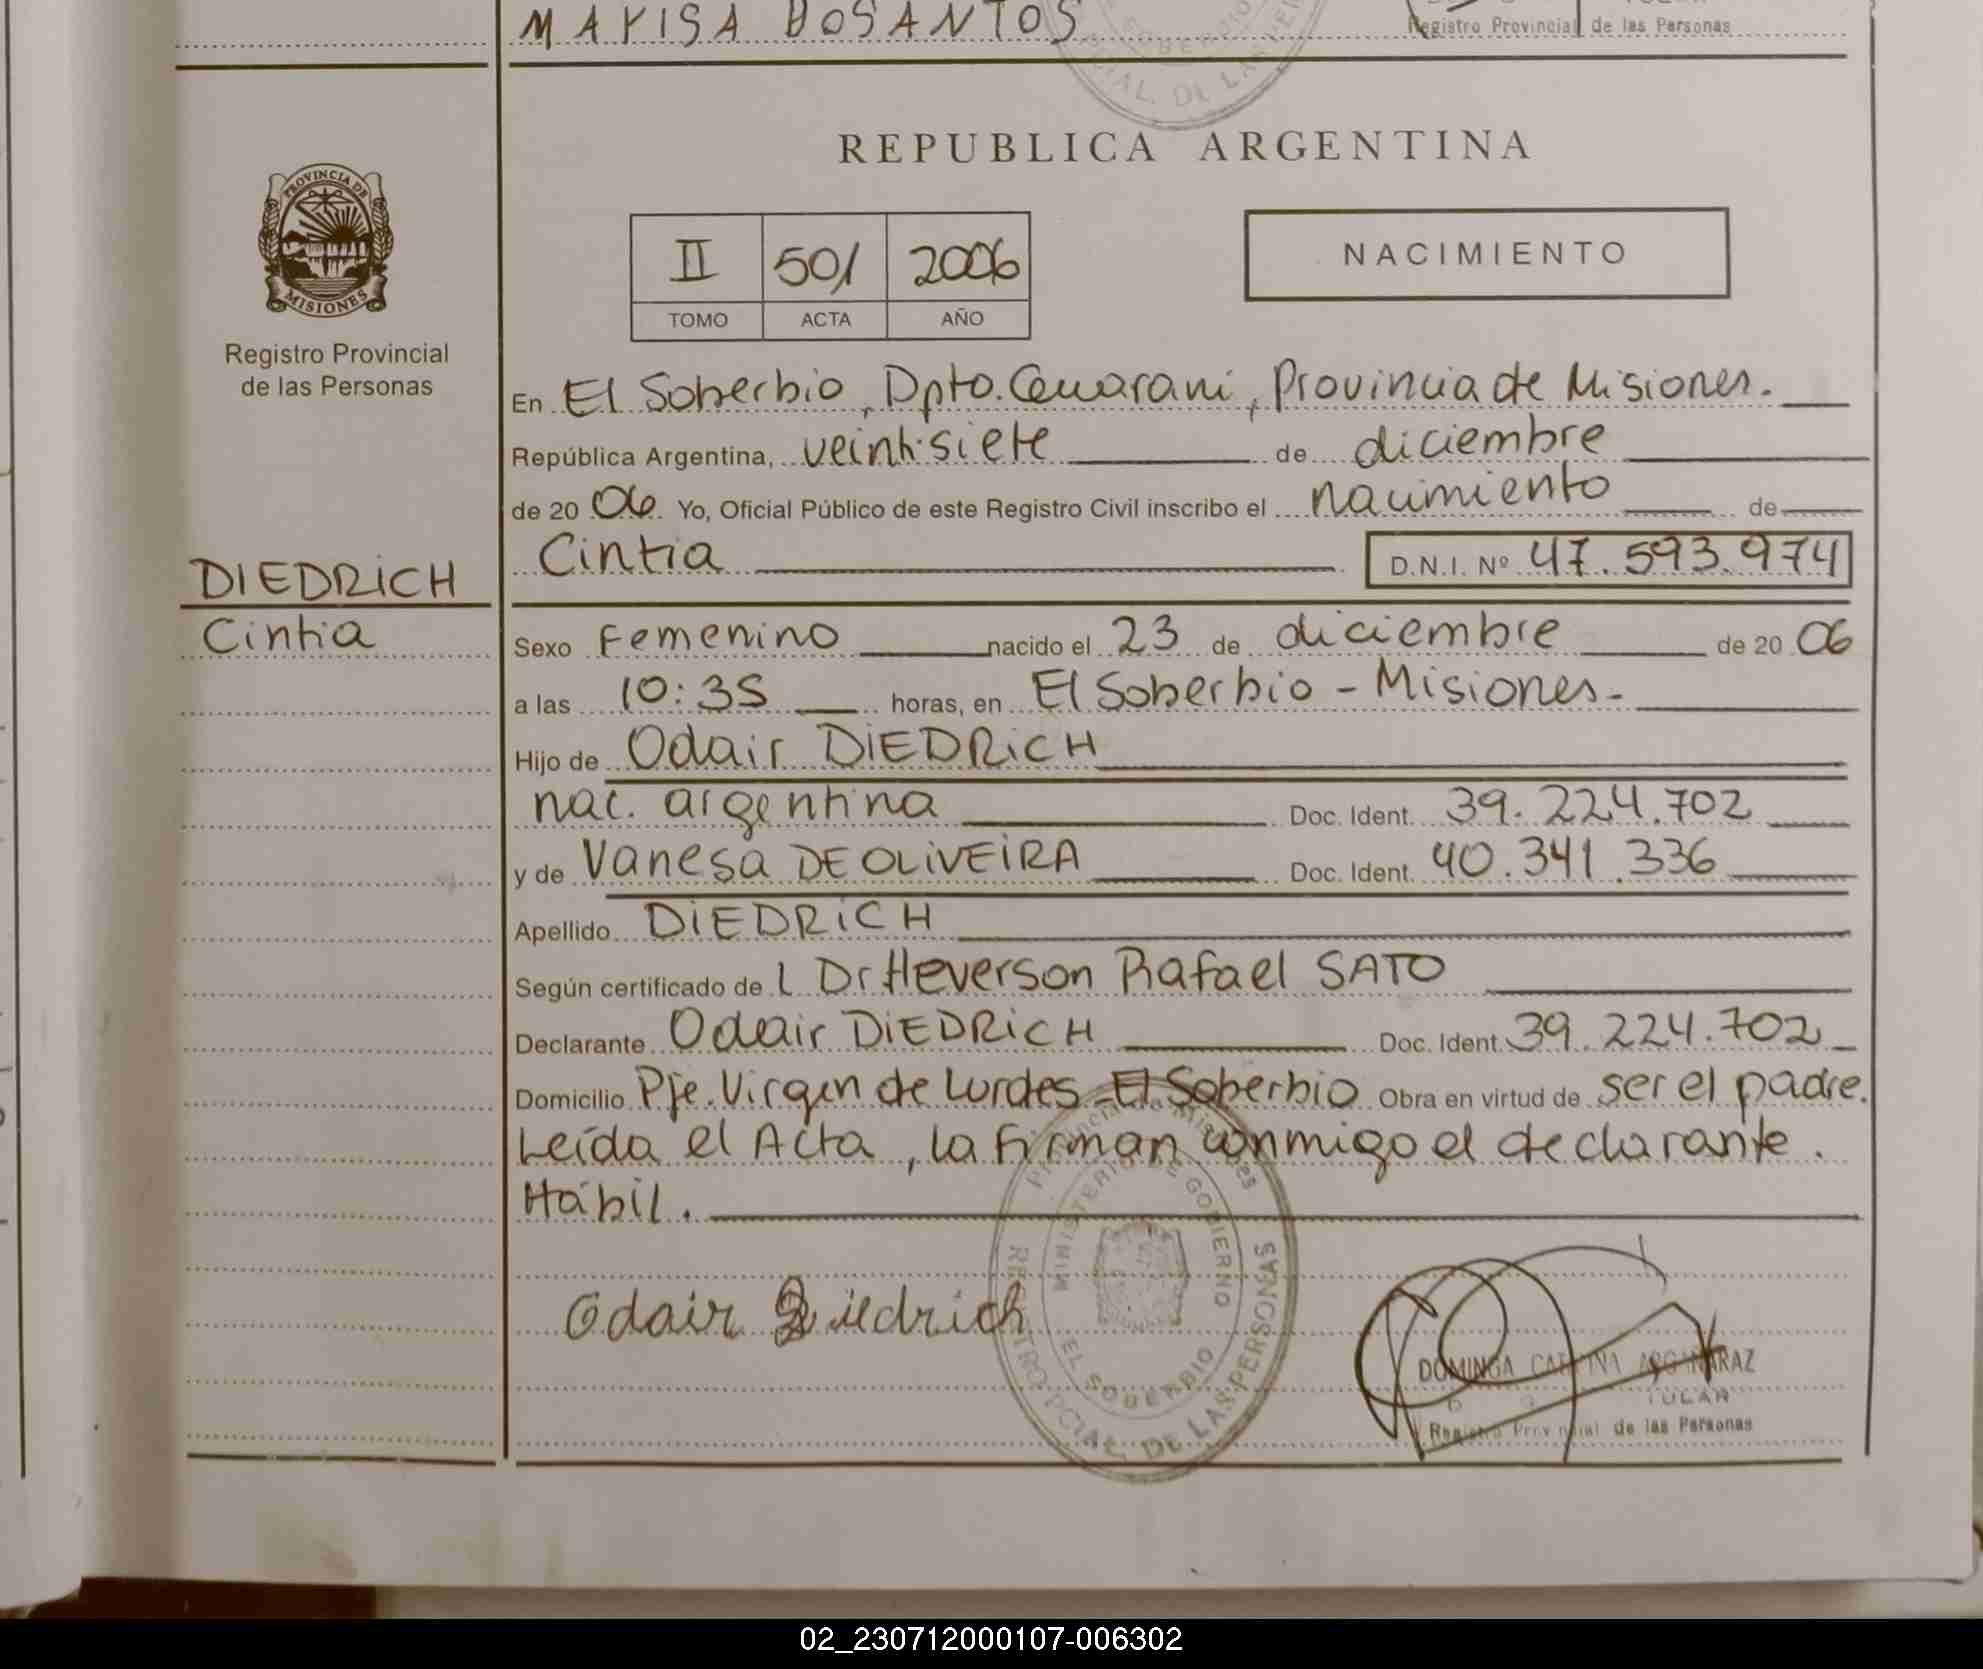 MAYISA DOSANTOS
Registro Provincial de las Personas
REPUBLICA ARGENTINA
PROVINCIA DE MISIONES
Registro Provincial
de las Personas
II 501 2006
TOMO ACTA AÑO
NACIMIENTO
En El Soberbio, Dpto. Guarani, Provincia de Misiones.
República Argentina, veintisiete de diciembre
de 20 06 Yo, Oficial Público de este Registro Civil inscribo el nacimiento de
DIEDRICH
Cintia
Cintia D.N.I. Nº 47.593.974
Sexo Femenino nacido el 23 de diciembre de 20 06
a las 10:35 horas, en El Soberbio - Misiones-
Hijo de Odair DIEDRICH
nac. argentina Doc. Ident. 39.224.702
y de Vanesa DE OLIVEIRA Doc. Ident. 40.341.336
Apellido DIEDRICH
Según certificado de l Dr Heverson Rafael SATO
Declarante Odair DIEDRICH Doc. Ident. 39.224.702
Domicilio Pje. Virgen de Lurdes - El Soberbio Obra en virtud de ser el padre.
Leída el Acta, la firman conmigo el declarante.
Hábil.
Odair Diedrich
Provincia de Misiones
MINISTERIO DE GOBIERNO
EL SOBERBIO
REGISTRO PCIAL. DE LAS PERSONAS
DOMINGA CATALINA ARGAÑARAZ
TULAR
Registro Provincial de las Personas
02_230712000107-006302